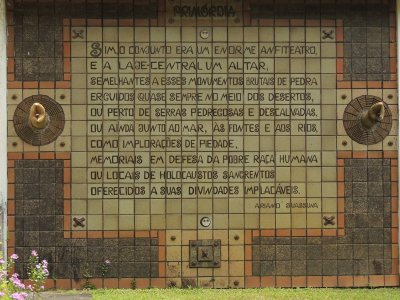 PRIMÓRDIA
SIM, O CONJUNTO ERA UM ENORME ANFITEATRO,
E A LAJE-CENTRAL UM ALTAR,
SEMELHANTES A ESSES MONUMENTOS BRUTAIS DE PEDRA
ERGUIDOS QUASE SEMPRE NO MEIO DOS DESERTOS,
OU PERTO DE SERRAS PEDREGOSAS E DESCALVADAS,
OU AINDA JUNTO AO MAR, AS FONTES E AOS RIOS,
COMO IMPLORAÇÕES DE PIEDADE,
MEMORIAIS EM DEFESA DA POBRE RAÇA HUMANA
OU LOCAIS DE HOLOCAUSTOS SANGRENTOS
OFERECIDOS A SUAS DIVINDADES IMPLACÁVEIS.
ARIANO SUASSUNA